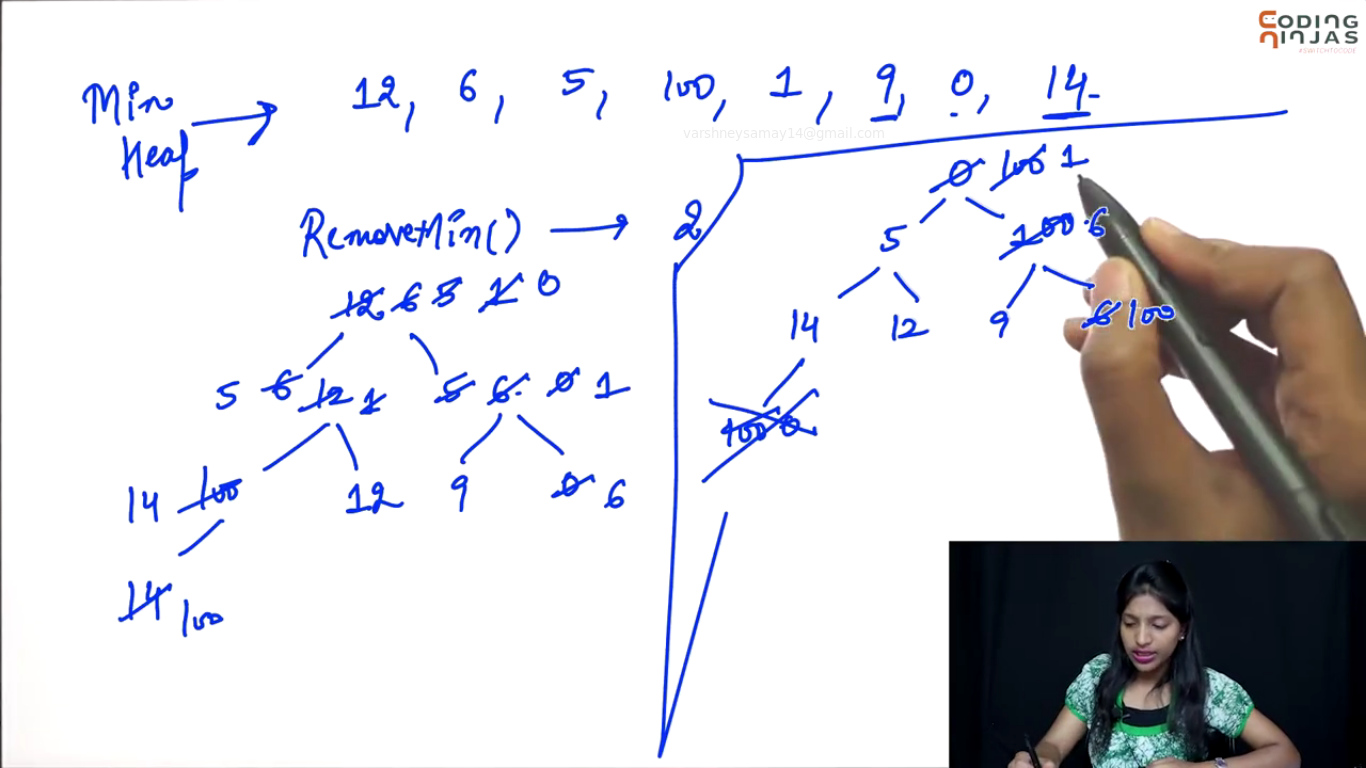 CODING
NINJAS
#SWITCHTOCODE
Min Heap → 12, 6, 5, 100, 1, 9, 0, 14
varshneysamay14@gmail.com
RemoveMin() → 2
12 6 5 1 0
5 6 12 1 5 6 0 1
14 100 12 9 0 6
14 100
0 100 1
5 100 6
14 12 9 6 100
100 0